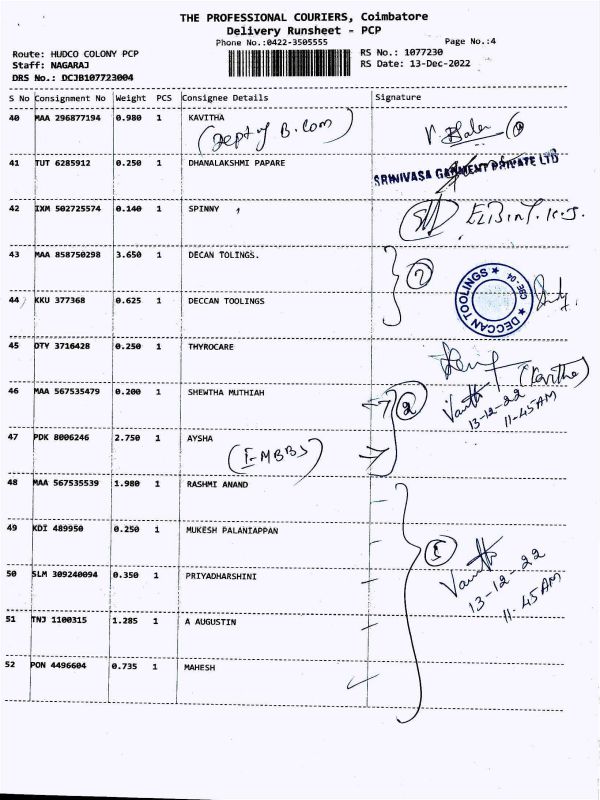 THE PROFESSIONAL COURIERS, Coimbatore
Delivery Runsheet - PCP
Phone No.:0422-3505555 Page No.:4
Route: HUDCO COLONY PCP RS No.: 1077230
Staff: NAGARAJ RS Date: 13-Dec-2022
DRS No.: DCJB107723004
S No Consignment No Weight PCS Consignee Details Signature
40 MAA 296877194 0.980 1 KAVITHA
(Dept of B.Com)
41 TUT 6285912 0.250 1 DHANALAKSHMI PAPARE
SRINIVASA GARMENT PRIVATE LTD
42 IXM 502725574 0.140 1 SPINNY
43 MAA 858750298 3.650 1 DECAN TOLINGS.
DECCAN TOOLINGS CBE-04
44 KKU 377368 0.625 1 DECCAN TOOLINGS
45 DTY 3716428 0.250 1 THYROCARE
(Kavitha)
46 MAA 567535479 0.200 1 SHEWTHA MUTHIAH
2
13-12-22
11-45AM
47 PDK 8006246 2.750 1 AYSHA
(I-MBBS)
48 MAA 567535539 1.980 1 RASHMI ANAND
49 KDI 489950 0.250 1 MUKESH PALANIAPPAN
50 SLM 309240094 0.350 1 PRIYADHARSHINI
13-12-22
11-45AM
51 TNJ 1100315 1.285 1 A AUGUSTIN
52 PON 4496604 0.735 1 MAHESH